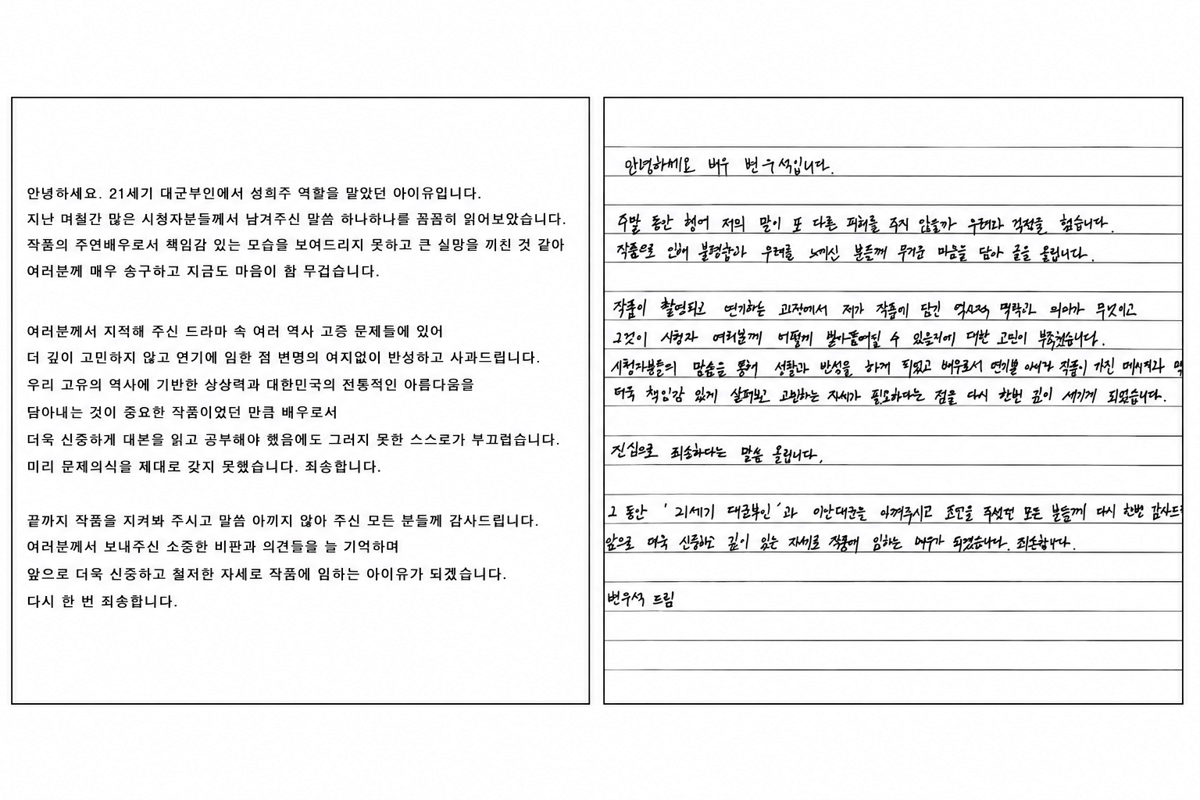 안녕하세요. 21세기 대군부인에서 성희주 역할을 말았던 아이유입니다.
지난 며철간 많은 시청자분들께서 남겨주신 말씀 하나하나를 꼼꼼히 읽어보았습니다.
작품의 주연배우로서 책임감 있는 모습을 보여드리지 못하고 큰 실망을 끼친 것 같아
여러분께 매우 송구하고 지금도 마음이 참 무겁습니다.
여러분께서 지적해 주신 드라마 속 여러 역사 고증 문제들에 있어
더 깊이 고민하지 않고 연기에 임한 점 변명의 여지없이 반성하고 사과드립니다.
우리 고유의 역사에 기반한 상상력과 대한민국의 전통적인 아름다움을
담아내는 것이 중요한 작품이었던 만큼 배우로서
더욱 신중하게 대본을 읽고 공부해야 했음에도 그러지 못한 스스로가 부끄럽습니다.
미리 문제의식을 제대로 갖지 못했습니다. 죄송합니다.
끝까지 작품을 지켜봐 주시고 말씀 아끼지 않아 주신 모든 분들께 감사드립니다.
여러분께서 보내주신 소중한 비판과 의견들을 늘 기억하며
앞으로 더욱 신중하고 철저한 자세로 작품에 임하는 아이유가 되겠습니다.
다시 한 번 죄송합니다.
안녕하세요 배우 변우석입니다.
주말 동안 혹여 저의 말이 또 다른 피해를 주지 않을까 우려와 걱정을 했습니다.
작품으로 인해 불편함과 우려를 느끼신 분들께 무거운 마음을 담아 글을 올립니다.
작품이 촬영되고 연기하는 과정에서 제가 작품에 담긴 역사적 맥락과 의미가 무엇이고
그것이 시청자 여러분께 어떻게 받아들여질 수 있을지에 대한 고민이 부족했습니다.
시청자분들의 말씀을 통해 성찰과 반성을 하게 되었고 배우로서 연기뿐 아니라 작품이 가진 메시지와
더욱 책임감 있게 살펴보고 고민하는 자세가 필요하다는 점을 다시 한번 깊이 새기게 되었습니다.
진심으로 죄송하다는 말씀 올립니다.
그 동안 '21세기 대군부인'과 이안대군을 아껴주시고 조언을 주셨던 모든 분들께 다시 한번
앞으로 더욱 신중하고 깊이 있는 자세로 작품에 임하는 배우가 되겠습니다. 죄송합니다.
변우석 드림